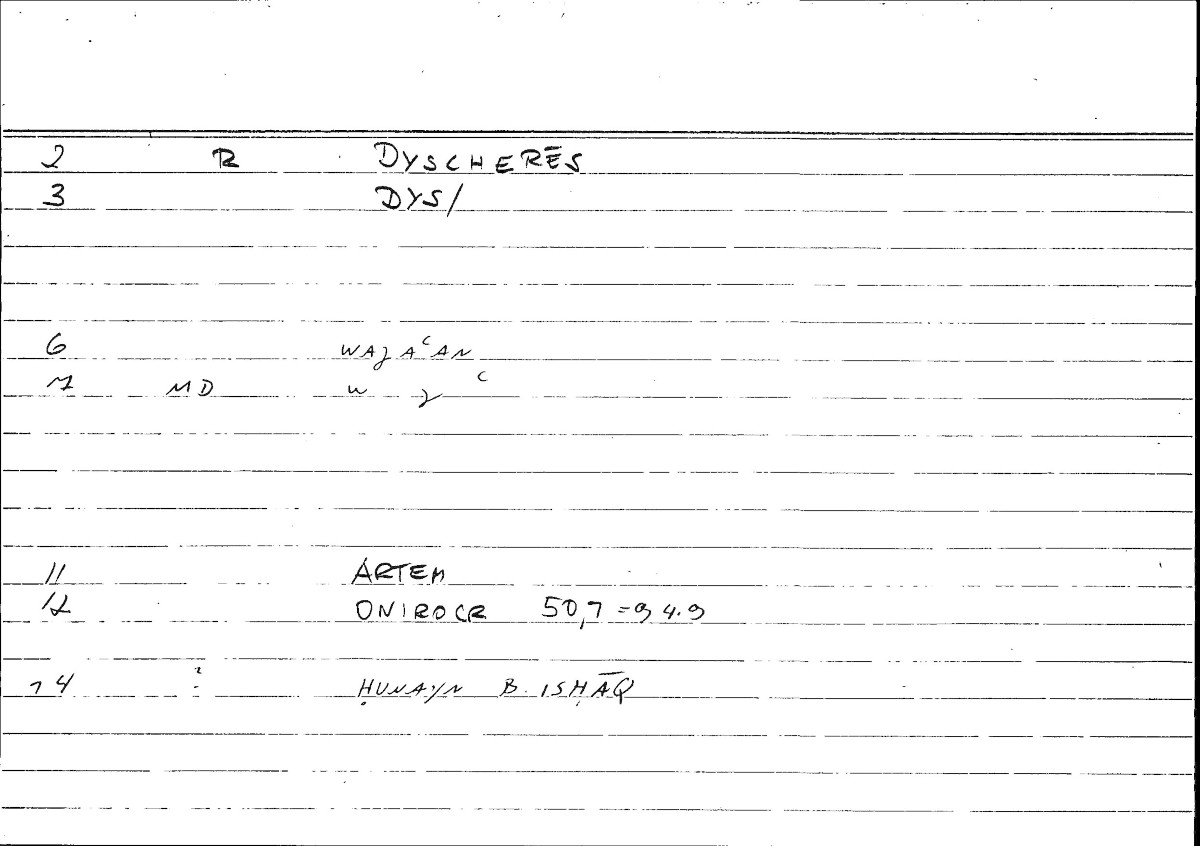 2 R DYSCHERĒS
3 DYS/
6 WAJAʿAN
7 MD W J ʿ
11 ARTEM
12 ONIROCR 50,7 = 94.9
14 ? ḤUNAYN B. ISḤĀQ